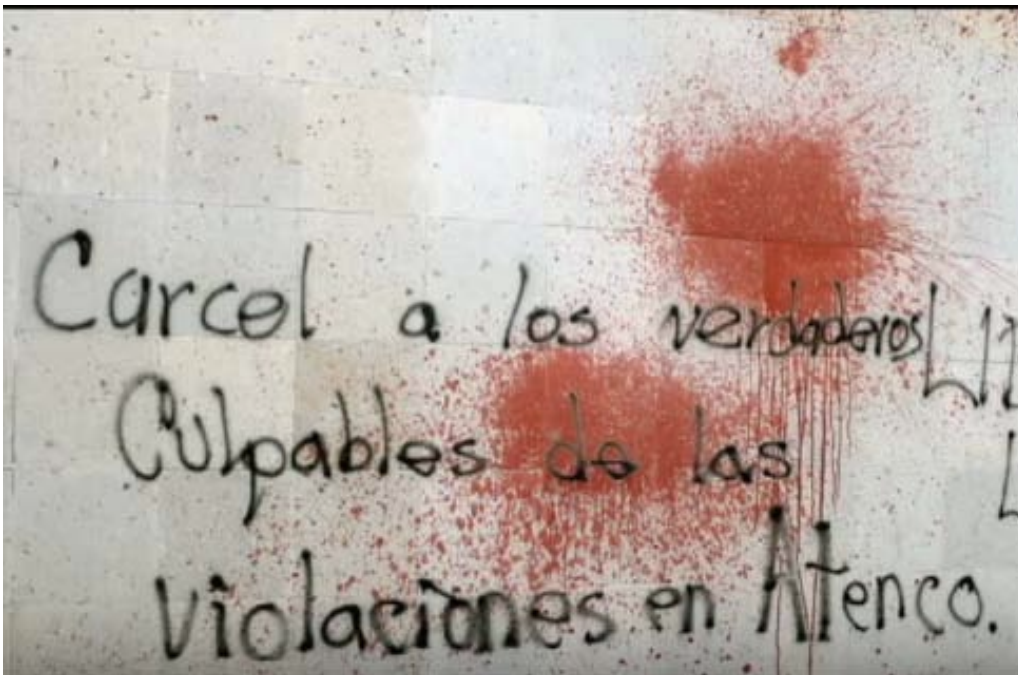 Carcel a los verdaderos
Culpables de las
Violaciones en Atenco.